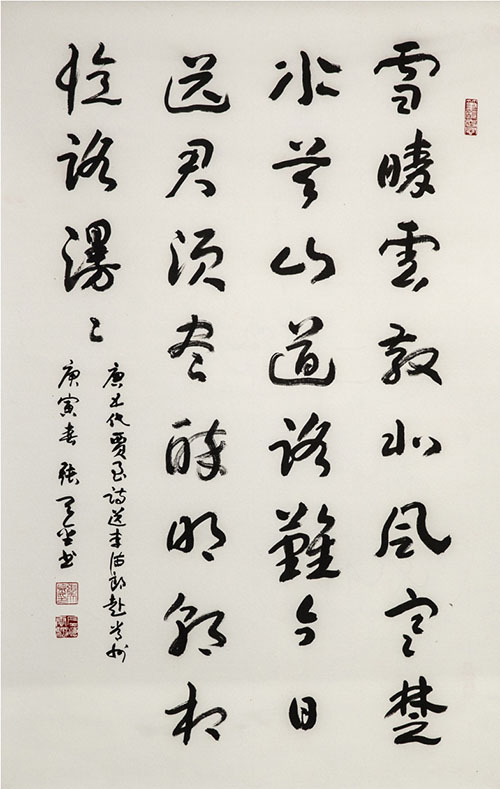 雪晴雲散北風寒楚
水吳山道路難今日
送君須盡醉明朝相
憶路漫〻
唐五代賈至詩送李侍郎赴常州
庚寅春 張書